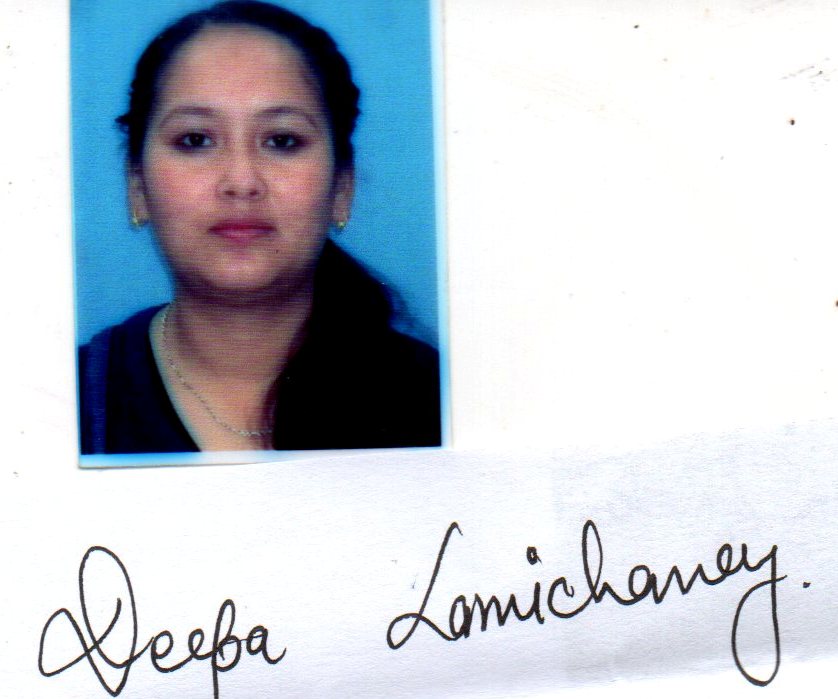 Deepa Lamichaney.